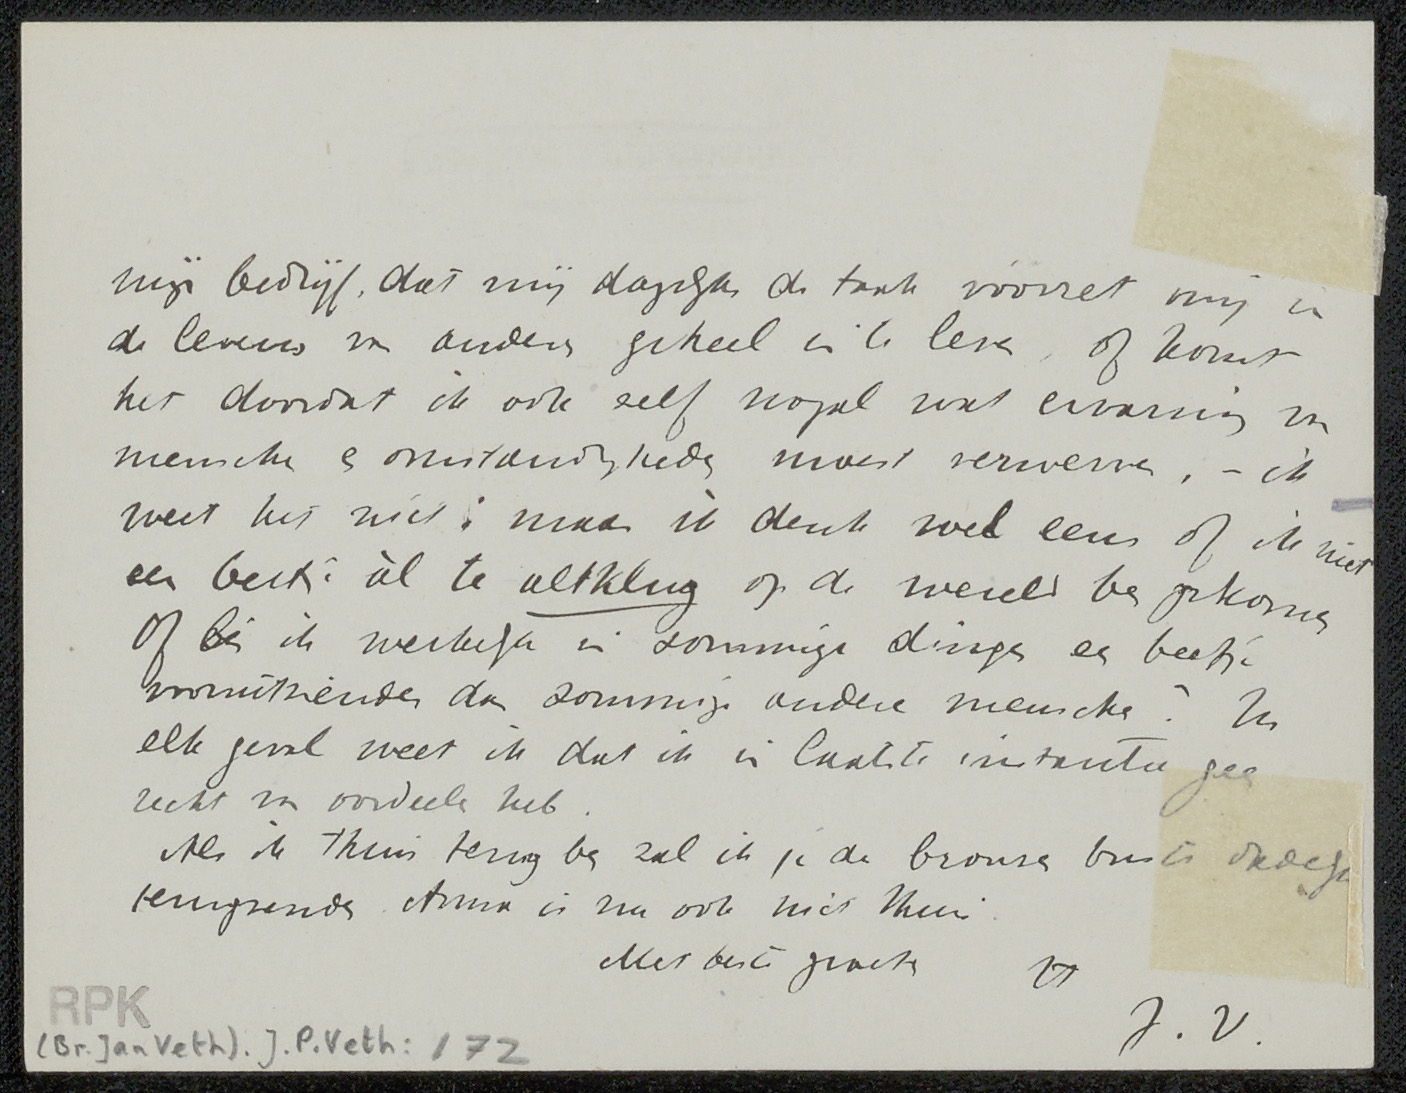 mijn bedrijf, dat mij dagelijks de taak voorzet mij in
de levens van anderen geheel in te leven, of komt
het doordat ik ook zelf nogal wat ervaring van
menschen en omstandigheden moest verwerven, - ik
weet het niet; maar ik denk wel eens of ik niet
een beetje àl te oltklug op de wereld ben gekomen
Of ben ik werkelijk in sommige dingen een beetje
vooruitziender dan sommige andere menschen? In
elk geval weet ik dat ik in laatste instantie geen
recht van oordeelen heb.
Als ik thuis terug ben zal ik je de bronzen buste dadelijk
terugzenden. Anna is nu ook niet thuis.
Met beste groeten
J. V.
RPK
(Br. Jan Veth). J.P. Veth: 172